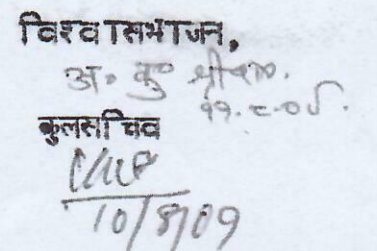 विश्वासभाजन,
अ. कु. श्रीवा.
११.८.०९.
कुलसचिव
10/8/09